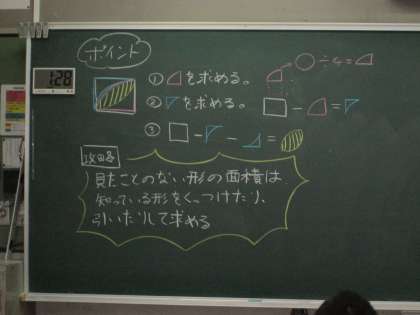 ポイント
1:28
① を求める。
÷4=
② を求める。
− =
③ − − =
攻略
見たことのない形の面積は
知っている形をくっつけたり、
引いたりして求める